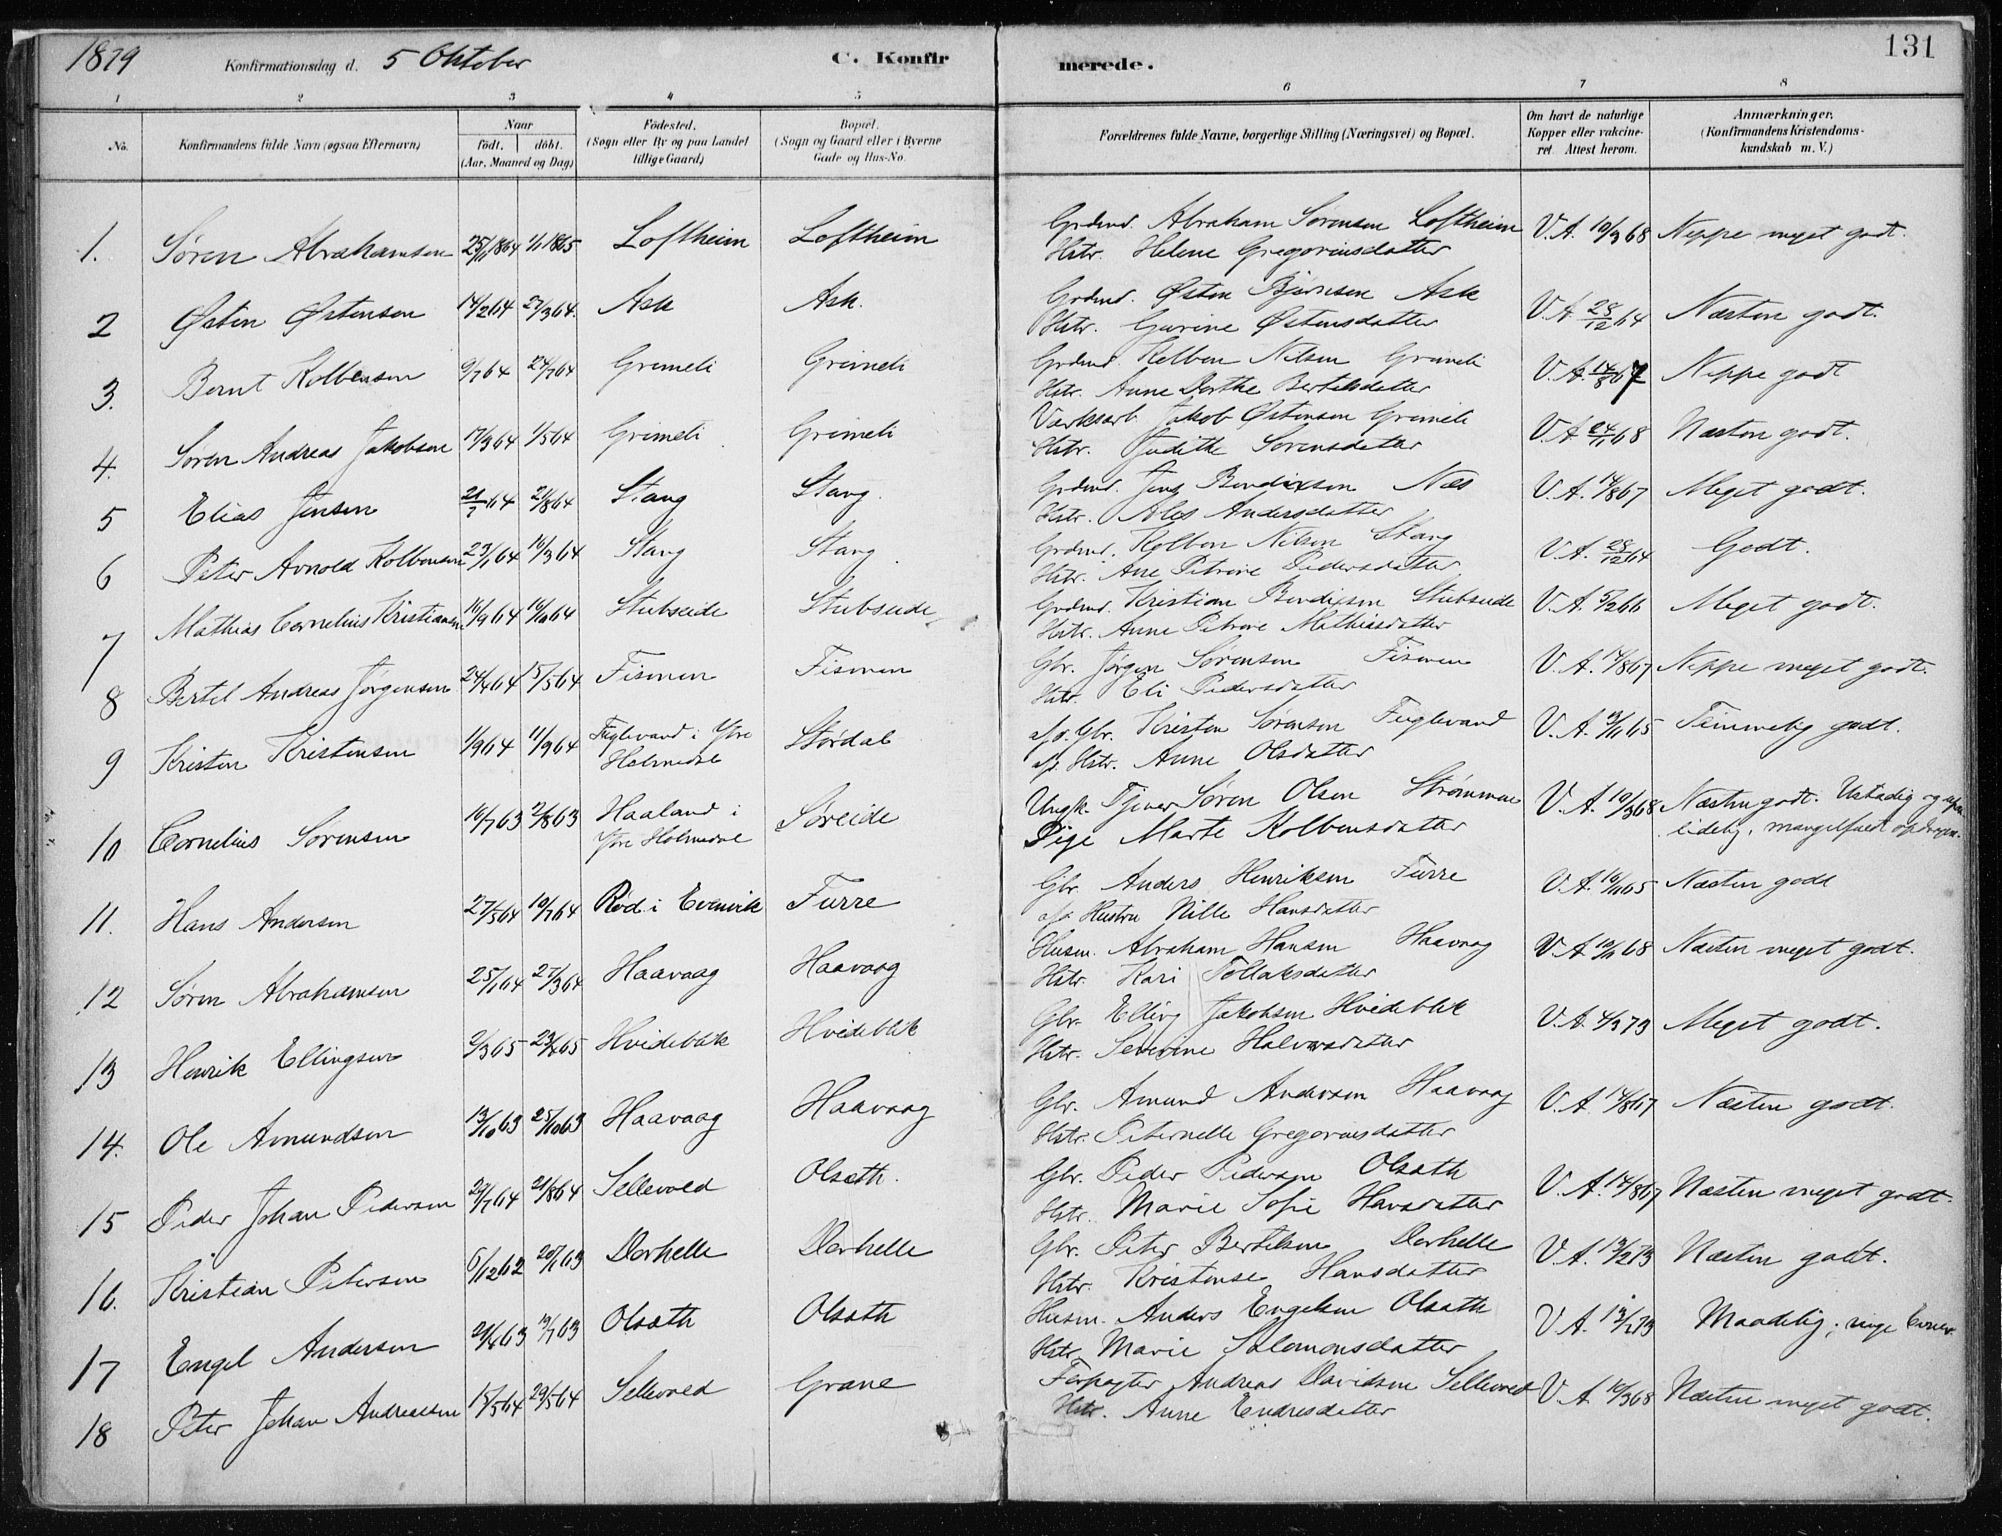 1879 Konfirmationsdag d. 5 Oktober C. Konfir merede. 131
1 2 3 4 5 6 7 8
No. Konfirmandens fulde Navn (ogsaa Efternavn) Naar født. døbt. (Aar, Maaned og Dag) Fødested. (Sogn eller By og paa Landet tillige Gaard) Bopæl. (Sogn og Gaard eller i Byerne Gade og Hus-No. Forældrenes fulde Navne, borgerlige Stilling (Næringsvei) og Bopæl. Om havt de naturlige Kopper eller vakcineret Attest herom. Anmærkninger, (Konfirmandens Kristendomskundskab m. V.)
1. Søren Abrahamsen 25/11 1864 1/1 1865 Loftheim Loftheim Grdmd. Abraham Sørensen Loftheim V.A. 10/3 68 Neppe meget godt.
Hstr. Helene Gregoriusdatter
2 Østen Østensen 14/2 64 27/3 64. Ask Ask. Grdmd. Østen Bjørnsen Ask V.A. 28/12 64 Næsten godt.
Hstr. Gurine Østensdatter
3. Bernt Kolbensen 9/7 64 24/7 64 Grimeli Grimeli Grdmd. Kolben Nilsen Grimeli V.A. 14/8 67 Neppe godt
Hstr. Anne Dorthe Bertelsdatter
4. Søren Andreas Jakobsen 17/3 64 1/5 64 Grimeli Grimeli Værksarb. Jakob Østensen Grimeli V.A 24/11 68 Næsten godt.
Hstr. Judithe Sørensdatter
5 Elias Jensen 21/7 64 21/8 64 Stang Stang. Grdmd. Jens Bendixsen Næs V.A. 14/8 67 Meget godt.
Hstr. Ales Andersdatter
6 Peter Arnold Kolbensen 23/1 64 16/3 64 Stang Stang. Grdmd. Kolben Nilsen Stang V.A. 28/12 64 Godt.
Hstr. Ane Petrine Pedersdatter
7 Mathias Cornelius Kristiansen 16/9 64 16/10 64 Stubseide Stubseide Grdmd. Kristian Bendixsen Stubseide V.A. 5/2 66 Meget godt.
Hstr. Anne Petrine Mathiasdatter
8 Bertel Andreas Jørgensen 24/4 64 15/5 64 Fismen Fismen Gbr. Jørgen Sørensen Fismen V.A. 14/8 67 Neppe meget godt.
Hstr. Eli Pedersdatter
9 Kristen Kristensen 1/9 64 11/9 64 Fuglevand i Ytre Holmedal Stordal afd. Gbr. Kristen Sørensen Fuglevand V.A. 13/11 65 Temmelig godt.
afd. Hstr. Anne Olsdatter
10 Cornelius Sørensen 16/7 63 2/8 63 Haaland i Ytre Holmedal Søreide Ungk. Tjener Søren Olsen Strømmen V.A. 10/3 68 Næsten godt. Ustadig og upaalidelig, mangelfuld opdragen.
Pige Marte Kolbensdatter
11. Hans Andersen 27/5 64 10/7 64 Rød i Evenvik Furre Gbr. Anders Henriksen Furre V.A. 16/11 65 Næsten godt
afd. Hustru Nille Hansdatter
12 Søren Abrahamsen 25/1 64 27/3 64 Haavaag Haavaag Husm. Abraham Hansen Haavaag V.A 10/11 68 Næsten meget godt.
Hstr. Kari Tollaksdatter
13 Henrik Ellingsen 2/3 65 23/4 65 Hvideblik Hvideblik Gbr. Elling Jakobsen Hvideblik V.A. 4/3 73 Meget godt.
Hstr. Severine Halvorsdatter
14. Ole Amundsen 13/10 63 25/10 63 Haavaag Haavaag Gbr. Amund Andersen Haavaag V.A. 14/8 67 Næsten godt.
Hstr. Peternelle Gregoriusdatter
15 Peder Johan Pedersen 29/7 64 21/8 64 Sellevold Olsæth. Gbr. Peder Pedersen Olsæth V.A. 14/8 67 Næsten meget godt.
Hstr. Marie Sofie Hansdatter
16. Kristian Petersen 6/12 62 20/1 63 Dorhelle Dorhelle Gbr. Peter Bertelsen Dorhelle V.A. 13/2 73 Næsten godt.
Hstr. Kristense Hansdatter
17 Engel Andersen 21/6 63 19/7 63 Olsæth Olsæth Husm. Anders Engelsen Olsæth V.A. 13/2 73 Maadelig; Evner.
Hstr. Marie Salomonsdatter
18 Peter Johan Andreassen 15/5 64 29/5 64 Sellevold Grane Forpagter Andreas Davidsen Sellevold V.A. 10/3 68 Næsten meget godt.
Hstr. Anne Endresdatter